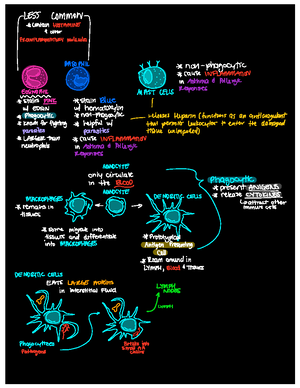 LESS COMMON
* contain HISTAMINE
& other
Proinflammatory molecules
EOSINOPHIL
BASOPHIL
MAST CELLS
* non-phagocytic
* cause INFLAMMATION
in Asthma & Allergic
Responses
* stain PINK
w/ EOSIN
* Phagocytic
* known for fighting
parasites
* LARGER than
neutrophils
* stain BLUE
w/ hematoxylin
* not-phagocytic
* helpful w/
parasites
* cause INFLAMMATION
in Asthma & Allergic
Responses
* releases Heparin (functions as an anticoagulant
that permits leukocytes to enter the damaged
tissue unimpeded)
MONOCYTE
only circulate
in the BLOOD
MONOCYTE
MACROPHAGES
* remains in
tissues
DENDRITIC CELLS
Phagocytic
* present ANTIGENS
* release CYTOKINES
immune cells
* some migrate into
tissues and differentiate
into MACROPHAGES
* Prototypical
Antigen Presenting
Cell
* Roam around in
LYMPH, Blood & TISSUES
DENDRITIC CELLS
EATS LARGER PROTEINS
in interstitial fluid
LYMPH
NODES
Phagocytoses
Pathogens
Breaks into
small AA
chains